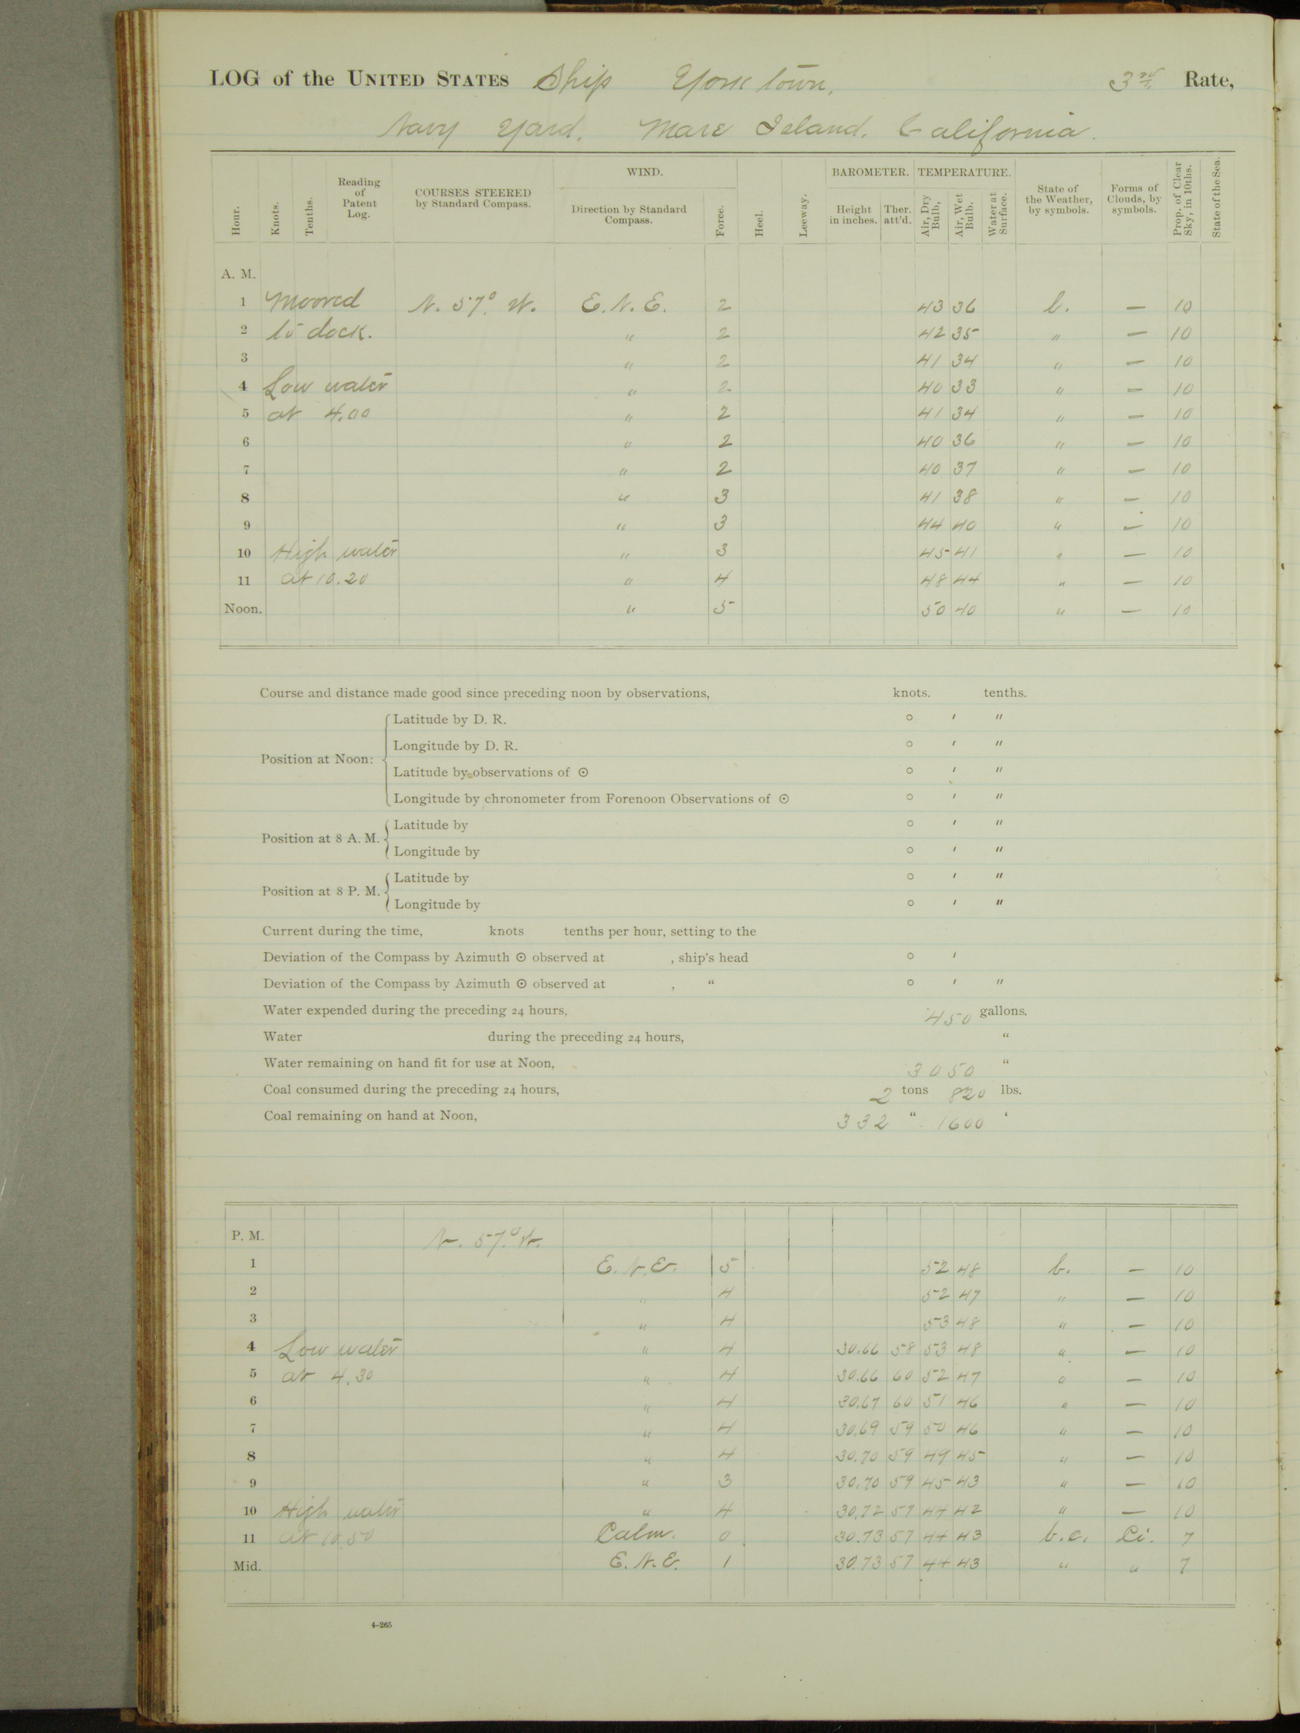 LOG of the UNITED STATES Ship Yorktown, 3rd Rate,
Navy Yard, Mare Island, California.
Hour. Knots. Tenths. Reading of Patent Log. COURSES STEERED by Standard Compass. WIND. Direction by Standard Compass. Force. Heel. Leeway. BAROMETER. Height in inches. Ther. att'd. TEMPERATURE. Air, Dry Bulb, Air, Wet Bulb. Water at Surface. State of the Weather, by symbols. Forms of Clouds, by symbols. Prop. of Clear Sky, in 10ths. State of the Sea.
A. M.
1 Moored N. 57° W. E.N.E. 2 43 36 b. — 10
2 to dock. " 2 42 35 " — 10
3 " 2 41 34 " — 10
4 Low water " 2 40 33 " — 10
5 at 4.00 " 2 41 34 " — 10
6 " 2 40 36 " — 10
7 " 2 40 37 " — 10
8 " 3 41 38 " — 10
9 " 3 44 40 " — 10
10 High water " 3 45 41 " — 10
11 at 10.20 " 4 48 44 " — 10
Noon. " 5 50 40 " — 10
Course and distance made good since preceding noon by observations, knots. tenths.
Position at Noon: Latitude by D. R. ° ′ ″
Longitude by D. R. ° ′ ″
Latitude by observations of ☉ ° ′ ″
Longitude by chronometer from Forenoon Observations of ☉ ° ′ ″
Position at 8 A. M. Latitude by ° ′ ″
Longitude by ° ′ ″
Position at 8 P. M. Latitude by ° ′ ″
Longitude by ° ′ ″
Current during the time, knots tenths per hour, setting to the
Deviation of the Compass by Azimuth ☉ observed at , ship's head ° ′
Deviation of the Compass by Azimuth ☉ observed at , " ° ′ ″
Water expended during the preceding 24 hours, 450 gallons.
Water during the preceding 24 hours, "
Water remaining on hand fit for use at Noon, 3050 "
Coal consumed during the preceding 24 hours, 2 tons 820 lbs.
Coal remaining on hand at Noon, 332 " 1600 "
P. M. N. 57° W.
1 E.N.E. 5 52 48 b. — 10
2 " 4 52 47 " — 10
3 " 4 53 48 " — 10
4 Low water " 4 30.66 58 53 48 " — 10
5 at 4.30 " 4 30.66 60 52 47 " — 10
6 " 4 30.67 60 51 46 " — 10
7 " 4 30.69 59 50 46 " — 10
8 " 4 30.70 59 49 45 " — 10
9 " 3 30.70 59 45 43 " — 10
10 High water " 4 30.72 57 44 42 " — 10
11 at 10.50 Calm. 0 30.73 57 44 43 b.c. Ci. 7
Mid. E.N.E. 1 30.73 57 44 43 " " 7
4-265